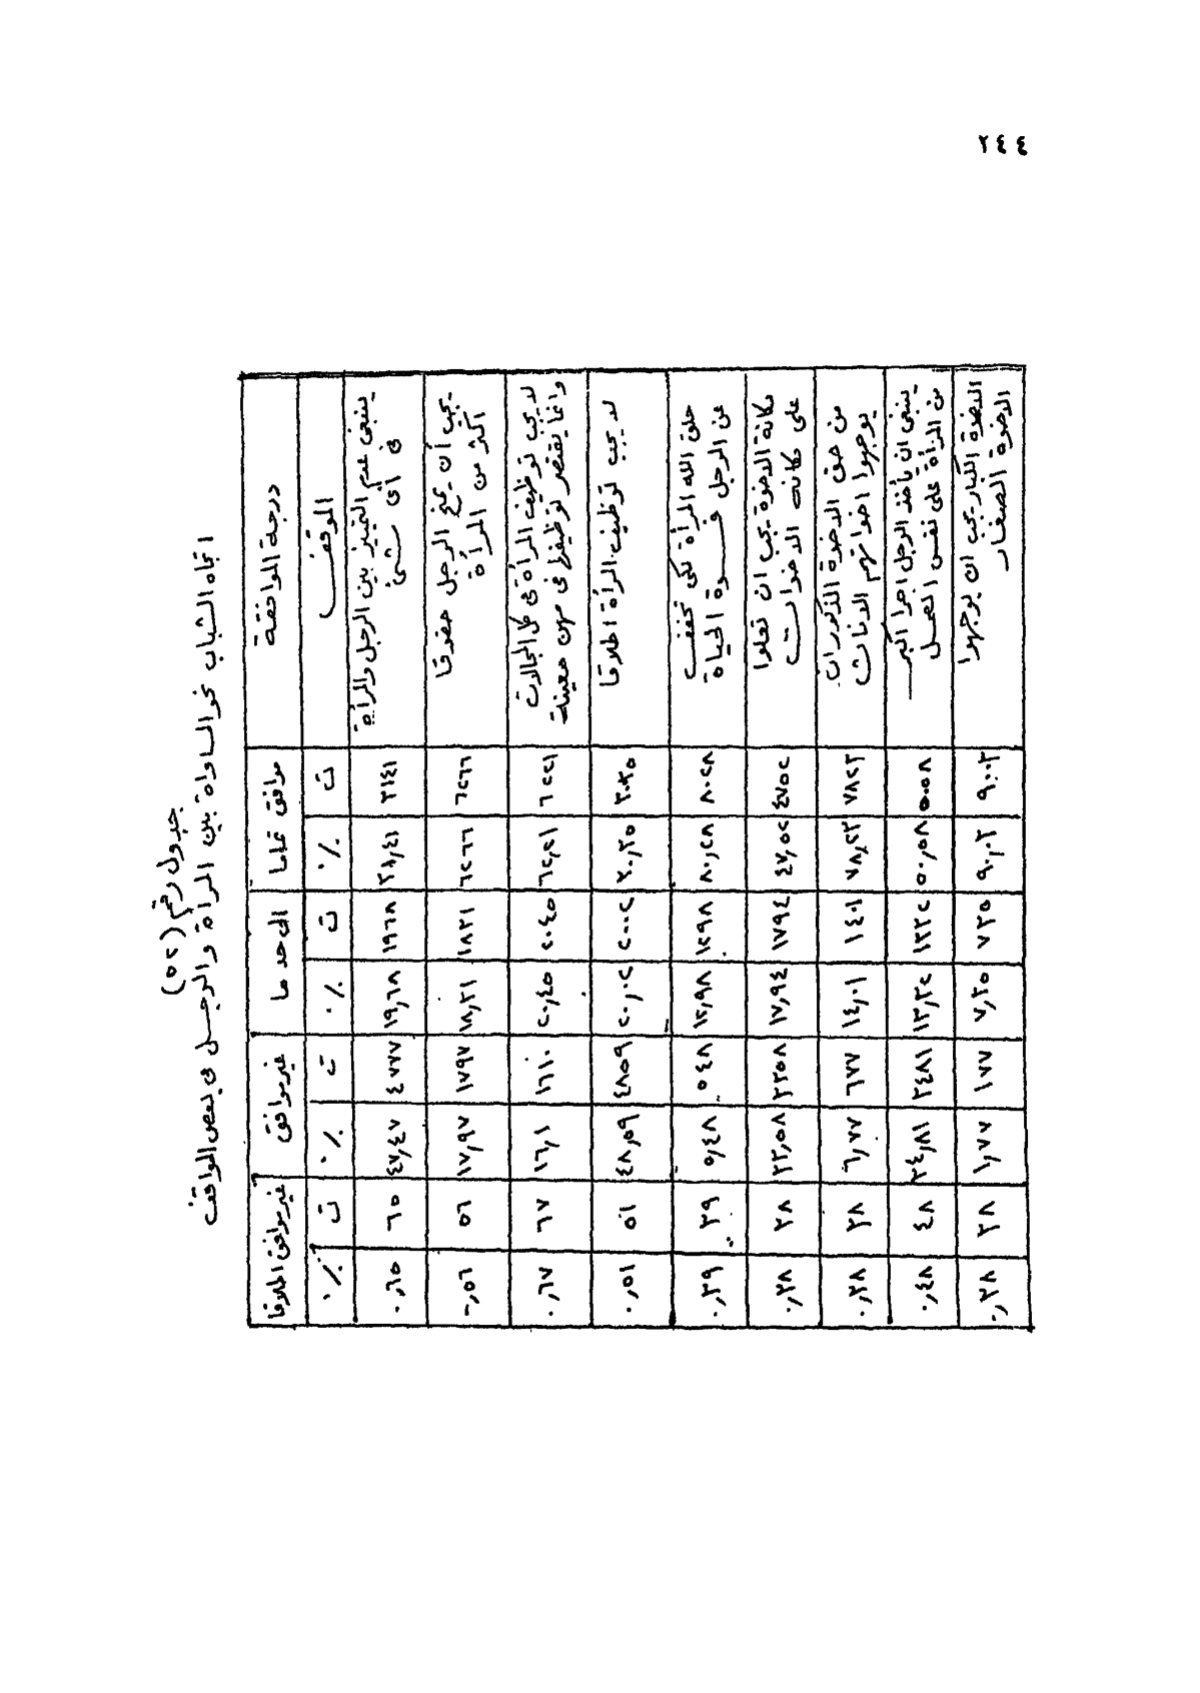 ٢٤٤
جدول رقم (٥٢)
اتجاه الشباب نحو المساواة بين المرأة والرجل فى بعض المواقف
درجة الموافقة موافق تماما الى حد ما غير موافق غير موافق اطلاقا
الموقف ت ٪ ت ٪ ت ٪ ت ٪
ينبغى عدم التمييز بين الرجل والمرأة
فى أى شئ
٣١٤١ ٣١,٤١ ١٩٦٨ ١٩,٦٨ ٤٧٧٧ ٤٧,٤٧ ٦٥ ٠,٦٥
يجب أن يمنح الرجل حقوقا
اكثر من المرأة
٦٢٦٦ ٦٢٦٦ ١٨٣١ ١٨,٣١ ١٧٩٧ ١٧,٩٧ ٥٦ ٠,٥٦
لا يجب توظيف المرأة فى كل المجالات
وانما يقتصر توظيفها فى مهن معينة
٦٢٢١ ٦٢,٢١ ٢٠٤٥ ٢٠,٤٥ ١٦١٠ ١٦,١ ٦٧ ٠,٦٧
لا يجب توظيف المرأة اطلاقا
٣٠٣٥ ٣٠,٣٥ ٢٠٠٢ ٢٠,٠٢ ٤٨٥٩ ٤٨,٥٩ ٥١ ٠,٥١
خلق الله المرأة لكى تخفف
عن الرجل قسوة الحياة
٨٠٢٨ ٨٠,٢٨ ١٢٩٨ ١٢,٩٨ ٥٤٨ ٥,٤٨ ٣٩ ٠,٣٩
مكانة الاخوة يجب ان تعلوا
على مكانه الاخوات
٤٧٥٢ ٤٧,٥٢ ١٧٩٤ ١٧,٩٤ ٣٣٥٨ ٣٣,٥٨ ٣٨ ٠,٣٨
من حق الاخوة الذكور ان
يوجهوا اخواتهم الاناث
٧٨٢٣ ٧٨,٢٣ ١٤٠١ ١٤,٠١ ٦٧٧ ٦,٧٧ ٣٨ ٠,٣٨
ينبغى ان يأخذ الرجل اجرا اكبر
من المرأة على نفس العمل
٥٠٥٨ ٥٠,٥٨ ١٣٣٢ ١٣,٣٢ ٣٤٨١ ٣٤,٨١ ٤٨ ٠,٤٨
الاخوة الكبار يجب ان يوجهوا
الاخوة الصغار
٩٠٠٣ ٩٠,٠٣ ٧٣٥ ٧,٣٥ ١٧٧ ١,٧٧ ٣٨ ٠,٣٨